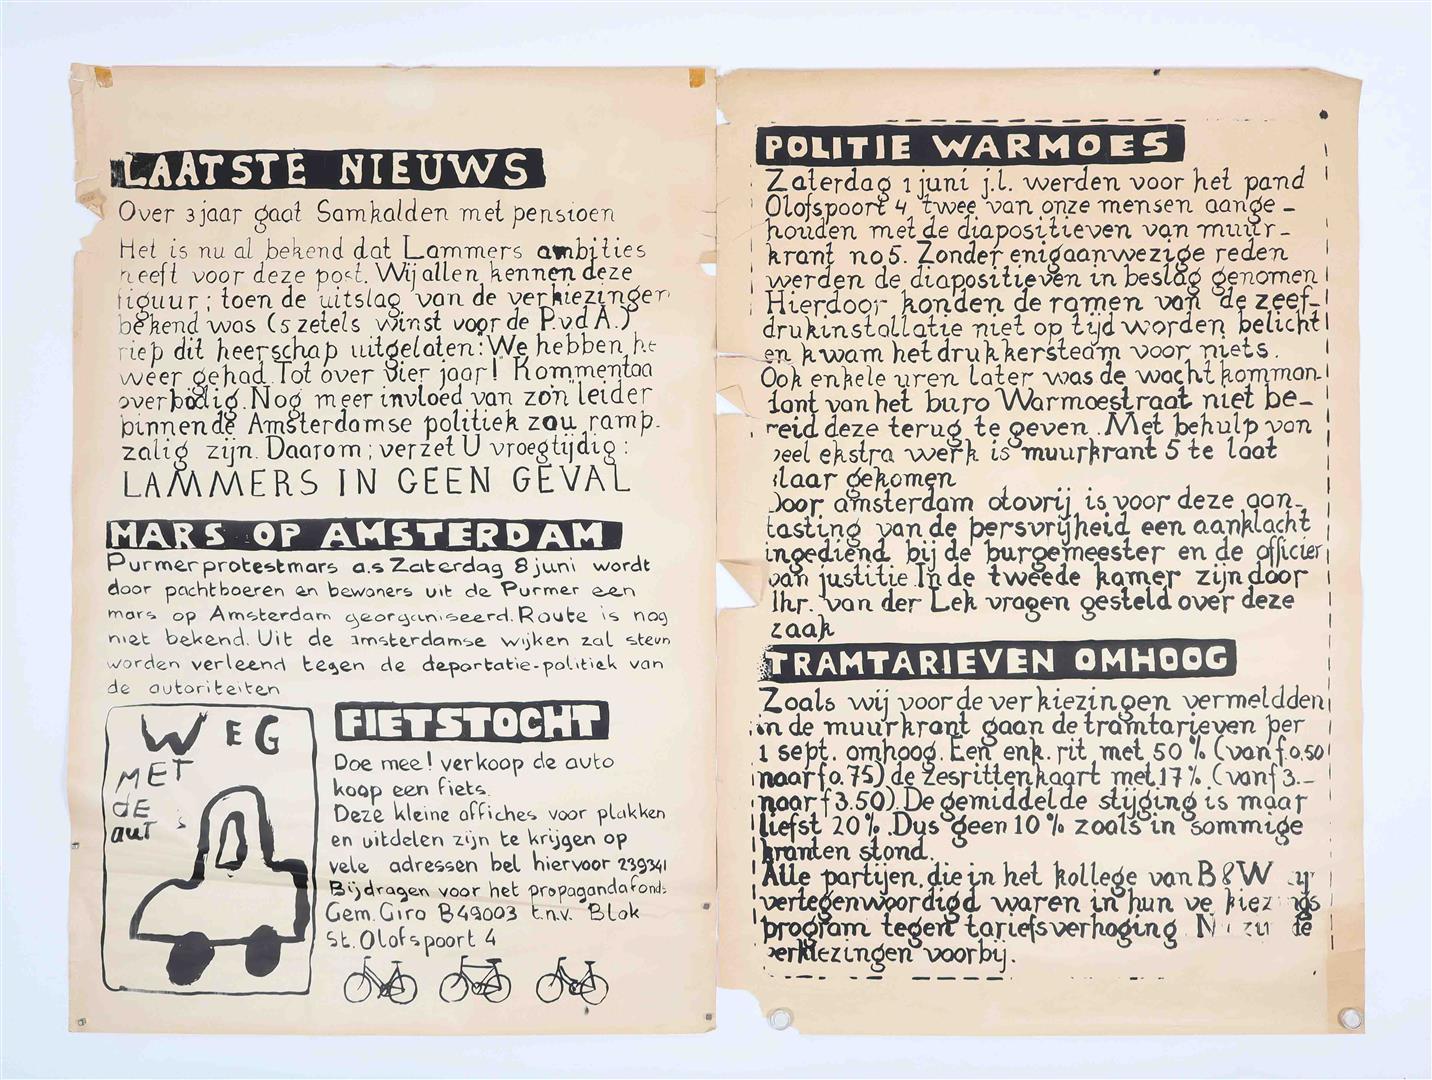 LAATSTE NIEUWS
Over 3 jaar gaat Samkalden met pensioen
Het is nu al bekend dat Lammers ambities
heeft voor deze post. Wij allen kennen deze
figuur; toen de uitslag van de verkiezingen
bekend was (5 zetels winst voor de P.v.d A.)
riep dit heerschap uitgelaten: We hebben he
weer gehad. Tot over vier jaar! Kommentaa
overbodig. Nog meer invloed van zo'n leider
binnen de Amsterdamse politiek zou ramp-
zalig zijn. Daarom; verzet U vroegtijdig:
LAMMERS IN GEEN GEVAL
MARS OP AMSTERDAM
Purmerprotestmars a.s Zaterdag 8 juni wordt
door pachtboeren en bewoners uit de Purmer een
mars op Amsterdam georganiseerd. Route is nog
niet bekend. Uit de amsterdamse wijken zal steun
worden verleend tegen de deportatie-politiek van
de autoriteiten
WEG
MET
DE
aut s
FIETSTOCHT
Doe mee! verkoop de auto
koop een fiets.
Deze kleine affiches voor plakken
en uitdelen zijn te krijgen op
vele adressen bel hiervoor 239341
Bijdragen voor het propagandafonds
Gem. Giro B49003 t.n.v. Blok
St. Olofspoort 4
POLITIE WARMOES
Zaterdag 1 juni j.l. werden voor het pand
Olofspoort 4 twee van onze mensen aange-
houden met de diapositieven van muur-
krant no 5. Zonder enig aanwezige reden
werden de diapositieven in beslag genomen
Hierdoor konden de ramen van de zeef-
drukinstallatie niet op tijd worden belicht
en kwam het drukkersteam voor niets.
Ook enkele uren later was de wachtkomman-
dant van het buro Warmoestraat niet be-
reid deze terug te geven. Met behulp van
veel ekstra werk is muurkrant 5 te laat
klaar gekomen
Door amsterdam otovrij is voor deze aan-
tasting van de persvrijheid een aanklacht
ingediend bij de burgemeester en de officier
van justitie. In de tweede kamer zijn door
Dhr. van der Lek vragen gesteld over deze
zaak
TRAMTARIEVEN OMHOOG
Zoals wij voor de verkiezingen vermeldden
in de muurkrant gaan de tramtarieven per
1 sept. omhoog. Een enk. rit met 50% (van f 0.50
naar f 0.75) de zesrittenkaart met 17% (van f 3.-
naar f 3.50). De gemiddelde stijging is maar
liefst 20%. Dus geen 10% zoals in sommige
kranten stond.
Alle partijen, die in het kollege van B&W
vertegenwoordigd waren in hun ve kiez ngs
program tegen tariefsverhoging. N zu de
verkiezingen voorbij.